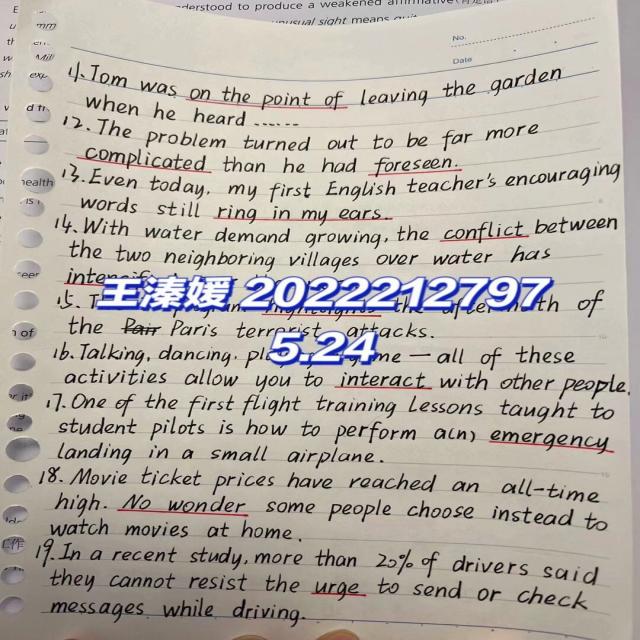 derstood to produce a weakened
unusual sight means
No.
Date
11. Tom was on the point of leaving the garden
when he heard ......
12. The problem turned out to be far more
complicated than he had foreseen.
13. Even today, my first English teacher's encouraging
words still ring in my ears.
14. With water demand growing, the conflict between
the two neighboring villages over water has
王溱媛 2022212797
5.24
the aftermath of
the Pair Paris terrorist attacks.
16. Talking, dancing, — all of these
activities allow you to interact with other people.
17. One of the first flight training lessons taught to
student pilots is how to perform a(n) emergency
landing in a small airplane.
18. Movie ticket prices have reached an all-time
high. No wonder some people choose instead to
watch movies at home.
19. In a recent study, more than 20% of drivers said
they cannot resist the urge to send or check
messages while driving.